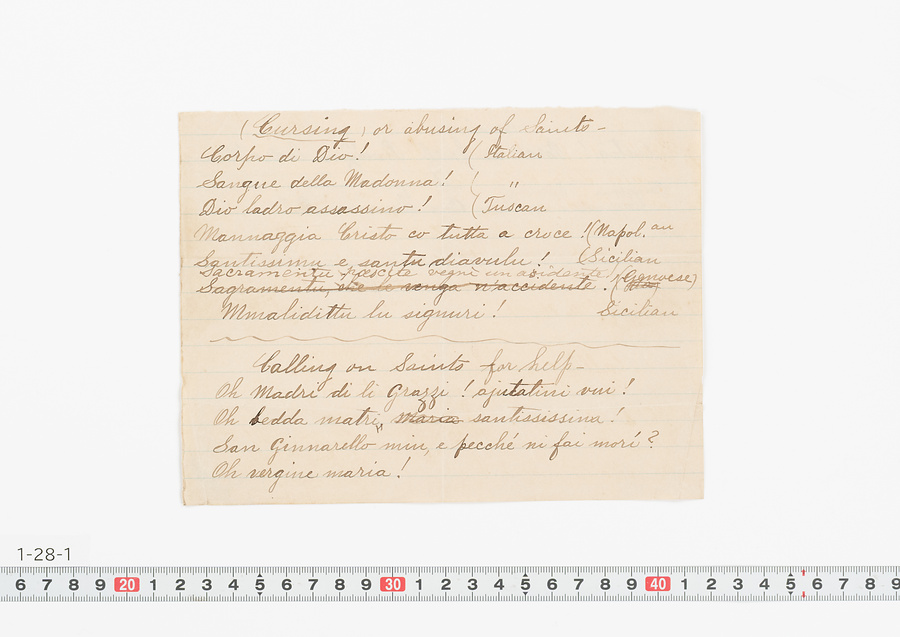 (Cursing) or abusing of Saints -
Corpo di Dio! (Italian
Sangue della Madonna! ( "
Dio ladro assassino! (Tuscan
Mannaggia Cristo co tutta a croce! (Napol. an
Santissimu e santu diavulu! (Sicilian
Sacramentu vegni un accidente! (Genovese)
Sagramentu, che le venga n'accidente!
Mmalidittu lu signuri! Sicilian
Calling on Saints for help -
Oh Madri di li Grazzi! ajutatini vui!
Oh bedda matri, maria santississina!
San Ginnarello miu, e pecché ni fai morí?
Oh vergine maria!
1-28-1
6 7 8 9 20 1 2 3 4 5 6 7 8 9 30 1 2 3 4 5 6 7 8 9 40 1 2 3 4 5 6 7 8 9